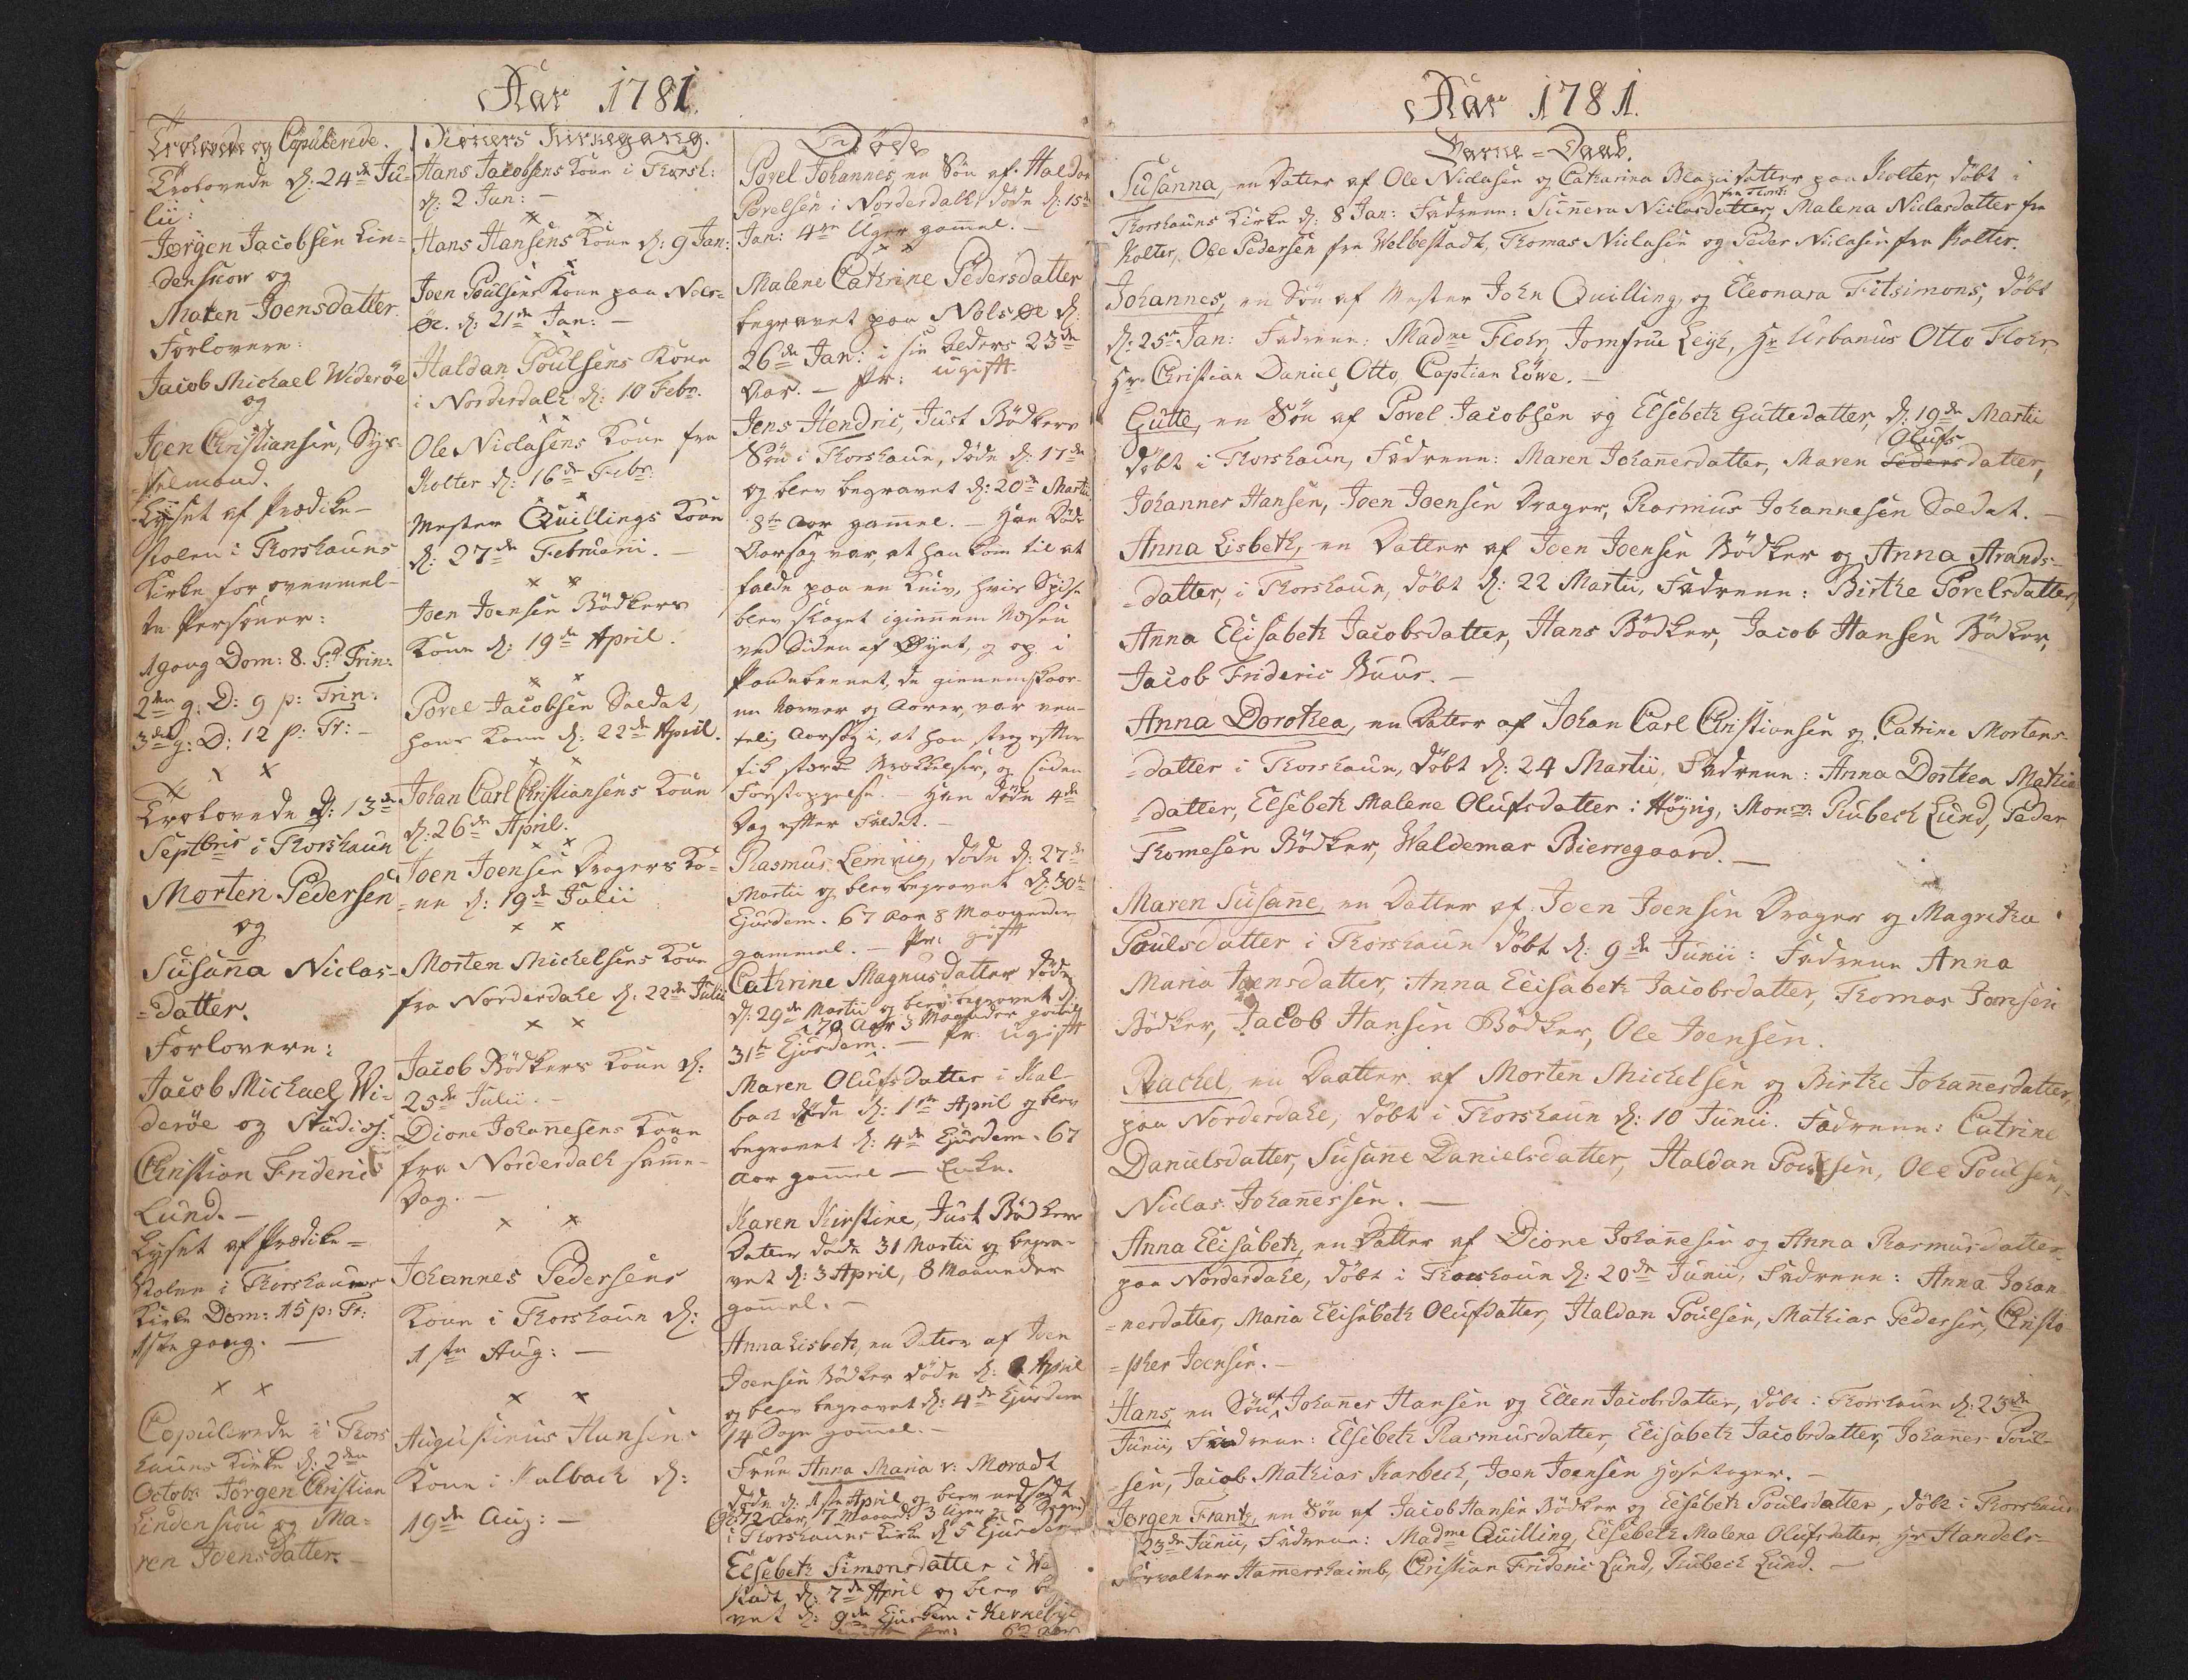 Aar 1781.
Trolovede og Copulerede.
Trolovede d: 24de Ju-
lii:
Jørgen Jacobsen Lin-
denskov og
Maren Joensdatter.
Forlovere:
Jacob Michael Widerøe
og
Joen Christiansen, Sys-
selmand.
Lyset af Prædike-
stolen i Thorshauns
Kirke for ovenmel-
te Personer:
1 gang Dom: 8. P: Trin:
2den g: D: 9 p: Trin:
3de g: D: 12 p: Tr: -
x x
Trolovede d: 13de
Septbris i Thorshaun
Morten Pedersen
og
Susanna Niclas-
=datter.
Forlovere:
Jacob Michael Wi-
derøe og Studios:
Christian Frideric
Lund. -
Lyset af Prædike=
stolen i Thorshauns
Kirke Dom: 15 p: Tr:
1ste gang. -
x x
Copulerede i Thors
hauns Kirke d: 2den
Octobr Jörgen Christian
Lindenskou og Ma-
ren Joensdatter. -
Koners Kirkegang.
Hans Jacobsens Kone i Thorsh:
d: 2 Jan: -
x x
Hans Hansens Kone d: 9 Jan:
x x
Joen Poulsens Kone paa Nols=
øe. d: 21de Jan: -
x x
Haldan Poulsens Kone
i Norderdalh d: 10 Febr.
x x
Ole Niclasens Kone fra
Kolter d: 16de Febr:
x x
Mester Quillings Kone
d: 27de Februarii. -
x x
Joen Joensen Bødkers
Kone d: 19de April.
x x
Povel Jacobsen Soldat,
hans Kone d: 22de April.
x x
Johan Carl Christiansens Kone
d: 26de April.
x x
Joen Joensen Dragers Ko=
=ne d: 19de Julii
x x
Morten Michelsens Kone
fra Norderdahl d: 22de Julii
x x
Jacob Bødkers Kone d:
25de Julii. -
Dione Johannesens Kone
fra Norderdalh samme
Dag. -
x x
Johannes Pedersens
Kone i Thorshaun d:
1ste Aug: -
x x
Augustinus Hansens
Kone i Kalbach d:
19de Aug: -
Døde
Povel Johannes, en Søn af Haldan
Povelsen i Norderdalh, døde d: 15de
Jan: 4re Uger gammel. -
x x
Malene Cathrine Pedersdatter
begravet paa Nolsøe d:
26de Jan: i sin alders 23de
Aar. - Pr: ugift.
Jens Hendric, Just Bødkers
Søn i Thorshaun, døde d: 17de
og blev begravet d: 20de Martii
8te Aar gammel. - Hans Døds
Aarsag var, at han kom til at
falde paa en Kniv, hvis Spidse
blev slaget igiennem Næsen
ved Siden af Øyet, og op i
Pandebeenet, de giennemskaar-
ne Nerver og Aarer, var ven-
telig Aarsag i, at han strax efter
fik stærk Brækkelse, og siden
Forstoppelse. - Han døde 4de
Dag efter Faldet. -
Rasmus Lemvig, døde d: 27de
Martii og blev begravet d: 30te
Ejusdem. 67 Aar 8 Maaneder
gammel. - Pr: gift
Cathrine Magnusdatter døde
d: 29de Martii og blev begravet d:
79 Aar 3 Maaneder gammel
31te Ejusdem. - Pr. ugift
Maren Olufsdatter i Kal-
bach døde d: 1ste April og blev
begravet d: 4de Ejusdem. 67
Aar gammel - Enke.
Karen Kirstine, Just Bødkers
Datter døde 31 Martii og begra-
vet d: 3 April, 8 Maaneder
gammel. -
Anna Lisbeth, en Datter af Joen
Joensen Bødker døde d: 2 April
og blev begravet d: 4de Ejusdem
14 Dage gammel. -
Frue Anna Maria v: Moradt
døde d: 1ste April og blev nedsadt
72 Aar, 7 Maand: 3 Uger 2 Dage
i Thorshauns Kirke d 5 Ejusdem
Elsebeth Simonsdatter i We
stadt, d: 7de April og blev be
vet d: 9de Ejusdem i Kirkebye
Pr: 62 Aar
Aar 1781.
Barne=Daab.
Susanna, en Datter af Ole Niclasen og Catharina Blazii datter paa Kolter, døbt i
fra Thorsh:
Thorshauns Kirke d: 8 Jan: Fadrene: Sunneva Niclasdatter, Malena Niclasdatter fra
Kolter, Ole Pedersen fra Welbestadt, Thomas Niclasen og Peder Niclasen fra Kolter.
Johannes, en Søn af Mester John Quilling, og Eleonara Fitsimons, døbt
d: 25de Jan: Fadrene: Madme Flohr, Jomfrue Leyh, Hr Urbanus Otto Flohr,
Hr. Christian Daniel Otto, Captian Löwe. -
Gutte, en Søn af Povel Jacobsen og Elsebeth Guttedatter, d: 19de Martii
Olufs
døbt i Thorshaun, Fadrene: Maren Johannesdatter, Maren Pedersdatter,
Johannes Hansen, Joen Joensen Drager, Rasmus Johannesen Soldat. -
Anna Lisbeth, en Datter af Joen Joensen Bødker og Anna Arands-
=datter, i Thorshaun, døbt d: 22 Martii, Fadrene: Birthe Povelsdatter,
Anna Elisabeth Jacobsdatter, Hans Bødker, Jacob Hansen Bødker,
Jacob Frideric Buur. -
Anna Dorothea, en Datter af Johan Carl Christiansen og Catrine Mortens-
=datter i Thorshaun, døbt d: 24 Martii, Fadrene: Anna Dorthea Mathie
=datter, Elsebeth Malene Olufsdatter i Høyvig, Monsr: Rubech Lund, Peder
Thomesen Bødker, Waldemar Bierregaard. -
Maren Susanne, en Datter af Joen Joensen Drager og Magretha
Poulsdatter i Thorshaun døbt d: 9de Junii: Fadrene Anna
Maria Joensdatter, Anna Elisabeth Jacobsdatter, Thomas Joensen
Bødker, Jacob Hansen Bødker, Ole Joensen.
Rachel, en Daatter af Morten Michelsen og Birthe Johannesdatter,
paa Norderdahl, døbt i Thorshaun d: 10 Junii. Fadrene: Catrine
Danielsdatter, Susanne Danielsdatter, Haldan Poulsen, Ole Poulsen,
Niclas Johannessen. -
Anna Elisabeth, en Datter af Dione Johannesen og Anna Rasmusdatter
paa Norderdahl, døbt i Thorshaun d: 20de Junii, Fadrene: Anna Johan
=nesdatter, Maria Elisabeth Olufdatter, Haldan Poulsen, Mathias Pedersen, Christo
=pher Joensen. -
Hans, en Søn af Johannes Hansen og Ellen Jacobsdatter, døbt i Thorshaun d: 23de
Junii, Fadrene: Elsebeth Rasmusdatter, Elisabeth Jacobsdatter, Johannes Poul-
=sen, Jacob Mathias Karbech, Joen Joensen Hosetager. -
Jørgen Frantz, en Søn af Jacob Hansen Bødker og Elsebeth Poulsdatter, døbt i Thorshaun
23de Junii, Fadrene: Madme Quilling, Elsebeth Malena Olufsdatter, Hr Handels-
forvalter Hammershaimb, Christian Frideric Lund, Rubech Lund. -